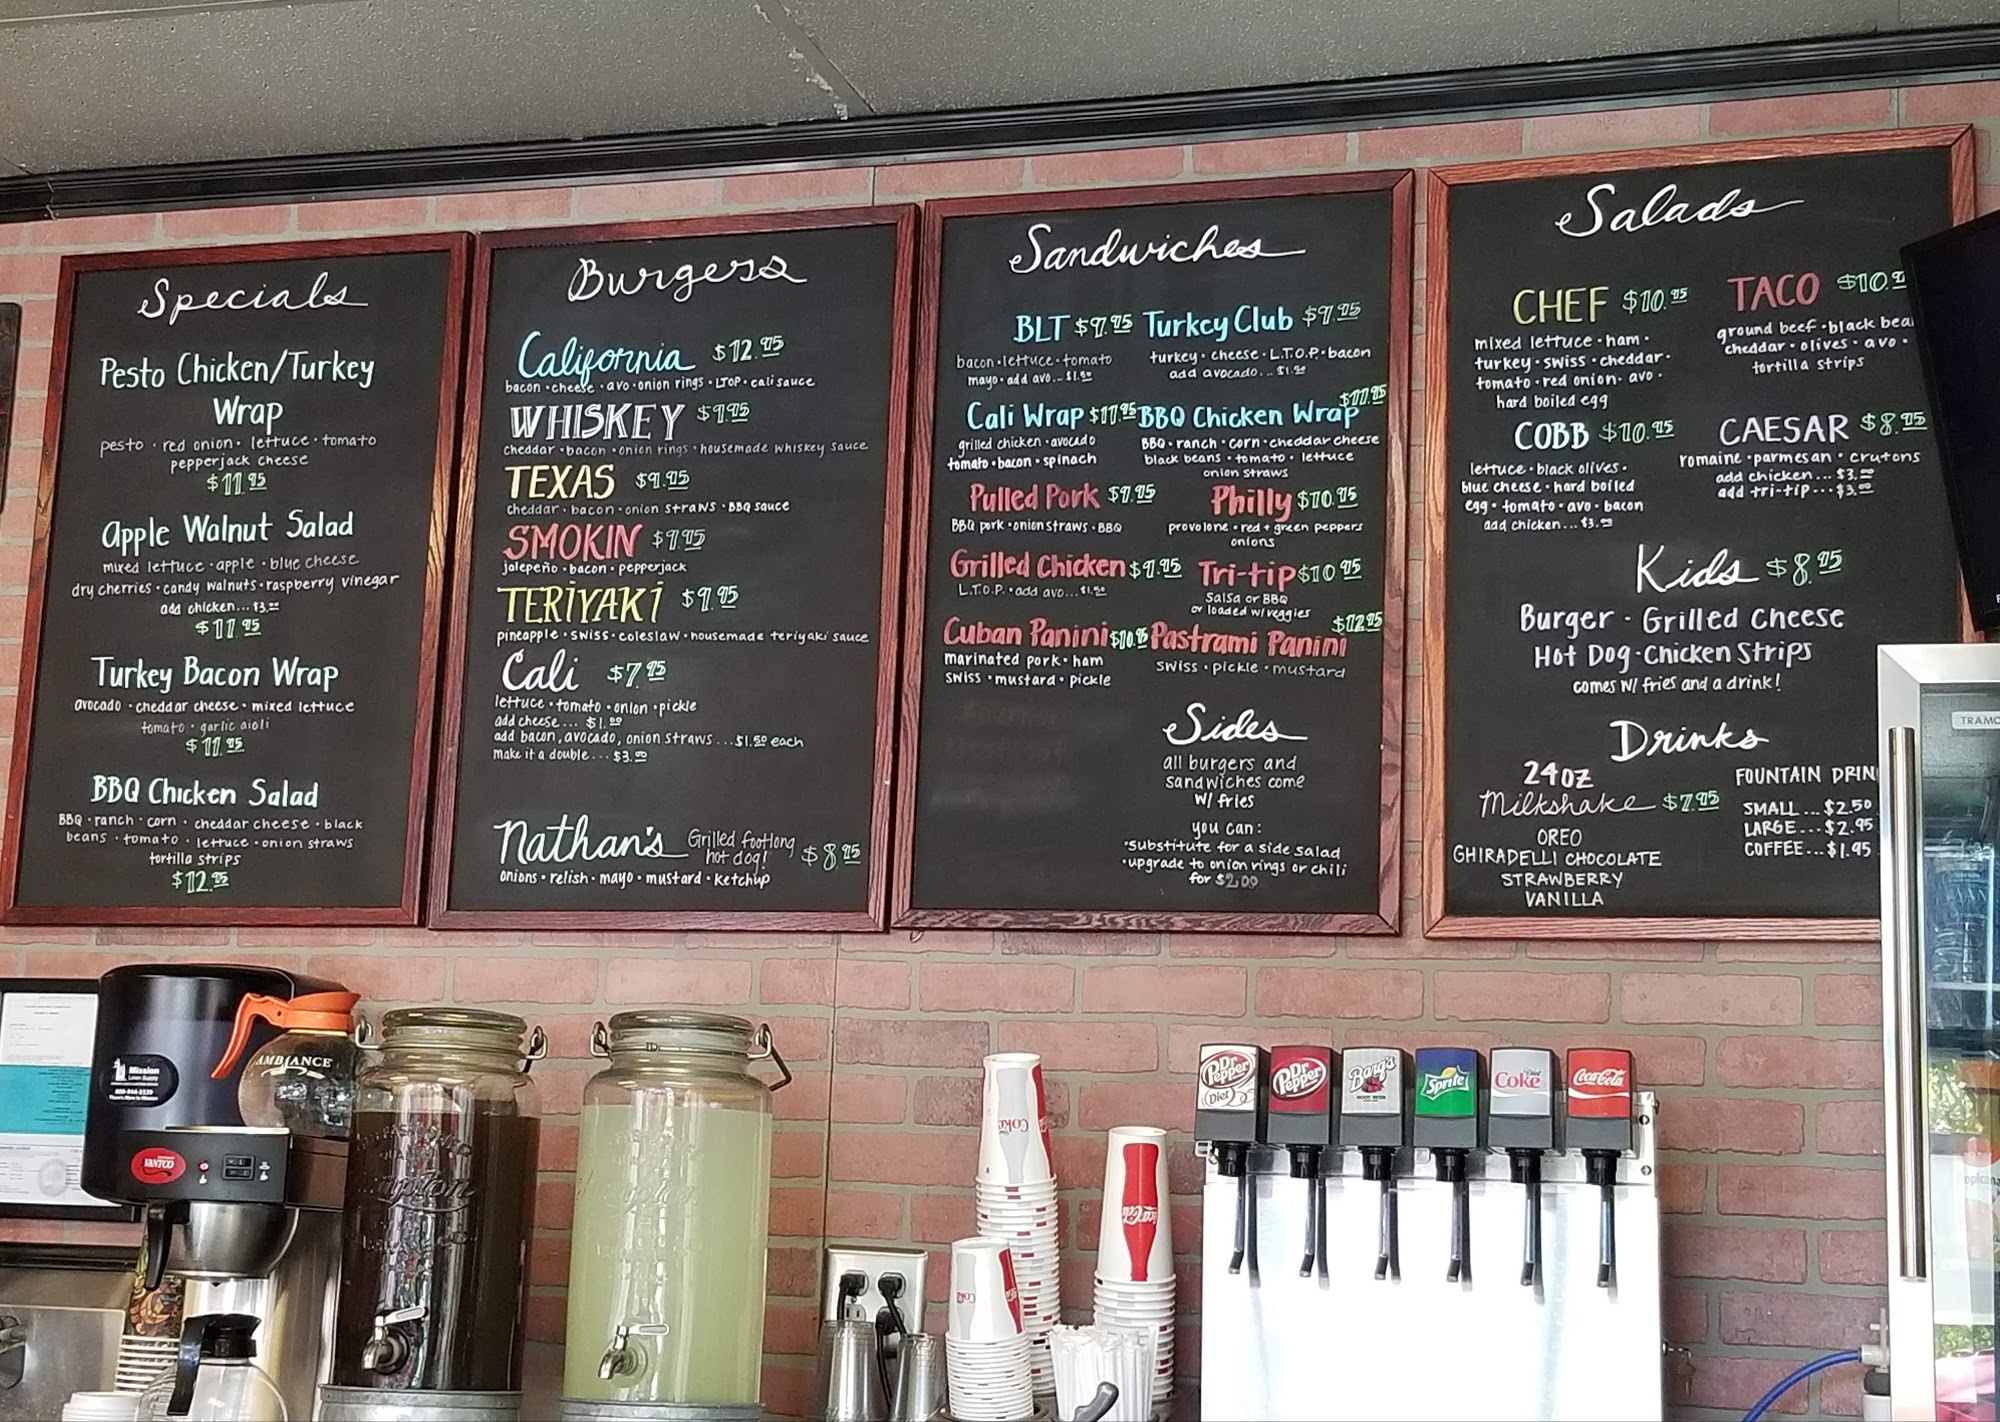 Specials
Pesto Chicken/Turkey
Wrap
pesto · red onion · lettuce · tomato
pepperjack cheese
$11.95
Apple Walnut Salad
mixed lettuce · apple · blue cheese
dry cherries · candy walnuts · raspberry vinegar
add chicken... $3.00
$11.95
Turkey Bacon Wrap
avocado · cheddar cheese · mixed lettuce
tomato · garlic aioli
$11.95
BBQ Chicken Salad
BBQ · ranch · corn · cheddar cheese · black
beans · tomato · lettuce · onion straws
tortilla strips
$12.95
Burgers
California $12.95
bacon · cheese · avo · onion rings · LTOP · cali sauce
WHISKEY $9.95
cheddar · bacon · onion rings · housemade whiskey sauce
TEXAS $9.95
cheddar · bacon · onion straws · BBQ sauce
SMOKIN $9.95
jalepeño · bacon · pepperjack
TERIYAKI $9.95
pineapple · swiss · coleslaw · housemade teriyaki sauce
Cali $7.95
lettuce · tomato · onion · pickle
add cheese... $1.00
add bacon, avocado, onion straws ... $1.50 each
make it a double... $3.00
Nathan's Grilled footlong
hot dog! $8.95
onions · relish · mayo · mustard · ketchup
Sandwiches
BLT $9.95
bacon · lettuce · tomato
mayo · add avo... $1.50
Turkey Club $9.95
turkey · cheese · L.T.O.P. · bacon
add avocado... $1.50
Cali Wrap $11.95
grilled chicken · avocado
tomato · bacon · spinach
BBQ Chicken Wrap $11.95
BBQ · ranch · corn · cheddar cheese
black beans · tomato · lettuce
onion straws
Pulled Pork $9.95
BBQ pork · onion straws · BBQ
Philly $10.95
provolone · red + green peppers
onions
Grilled Chicken $9.95
L.T.O.P. · add avo... $1.50
Tri-tip $10.95
Salsa or BBQ
or loaded w/ veggies
Cuban Panini $10.95
marinated pork · ham
swiss · mustard · pickle
Pastrami Panini $12.95
swiss · pickle · mustard
Sides
all burgers and
sandwiches come
w/ fries
you can:
·substitute for a side salad
·upgrade to onion rings or chili
for $2.00
Salads
CHEF $10.95
mixed lettuce · ham ·
turkey · swiss · cheddar ·
tomato · red onion · avo ·
hard boiled egg
TACO $10.
ground beef · black bea
cheddar · olives · avo ·
tortilla strips
COBB $10.95
lettuce · black olives ·
blue cheese · hard boiled
egg · tomato · avo · bacon
add chicken... $3.00
CAESAR $8.95
romaine · parmesan · crutons
add chicken... $3.00
add tri-tip... $3.00
Kids $8.95
Burger · Grilled Cheese
Hot Dog · Chicken Strips
comes w/ fries and a drink!
Drinks
24oz
Milkshake $7.95
OREO
GHIRADELLI CHOCOLATE
STRAWBERRY
VANILLA
FOUNTAIN DRIN
SMALL ... $2.50
LARGE ... $2.95
COFFEE... $1.95
TRAMO
AMBIANCE
Mission
Linen Supply
VANTCO
Dr Pepper Diet
Dr Pepper
Barq's
Sprite
Diet Coke
Coca-Cola
Coke
Coke
Coca-Cola